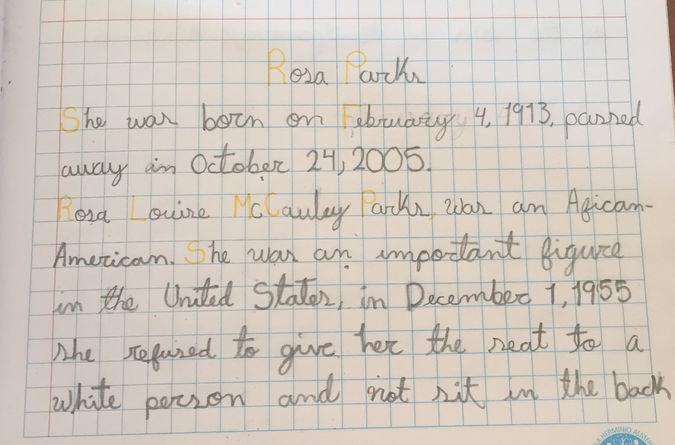 Rosa Parks
She was born on February 4, 1913, passed
away in October 24, 2005.
Rosa Louise McCauley Parks, was an Afican-
American. She was an important figure
in the United States, in December 1, 1955
she refused to give her the seat to a
white person and not sit in the back